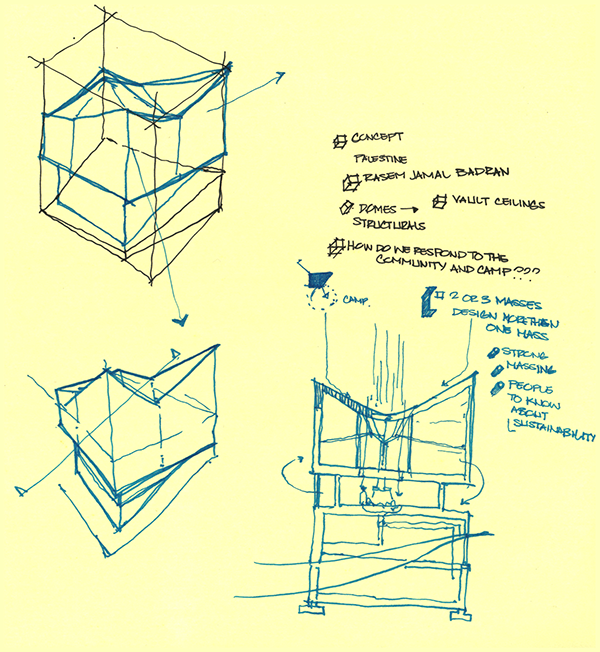 CONCEPT
PALESTINE
RASEM JAMAL BADRAN
DOMES → VAULT CEILINGS
STRUCTURALS
HOW DO WE RESPOND TO THE
COMMUNITY AND CAMP???
CAMP.
2 OR 3 MASSES
DESIGN MORE THEN
ONE MASS
STRONG
MASSING
PEOPLE
TO KNOW
ABOUT
SUSTAINABILITY